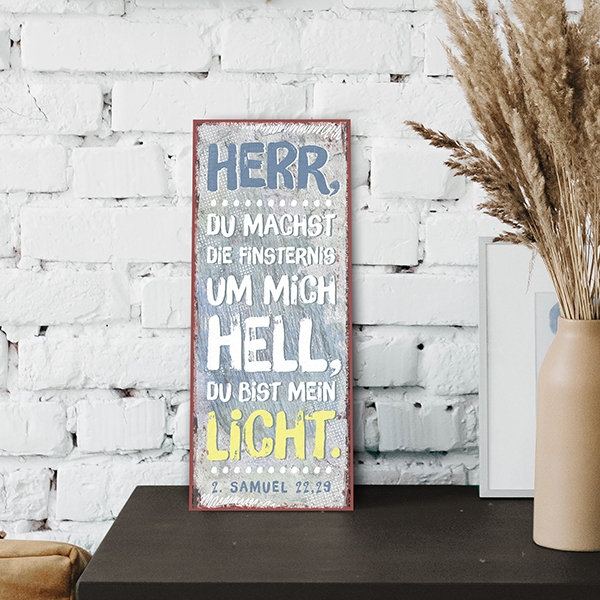 HERR,
DU MACHST
DIE FINSTERNIS
UM MICH
HELL,
DU BIST MEIN
LICHT.
2. SAMUEL 22,29